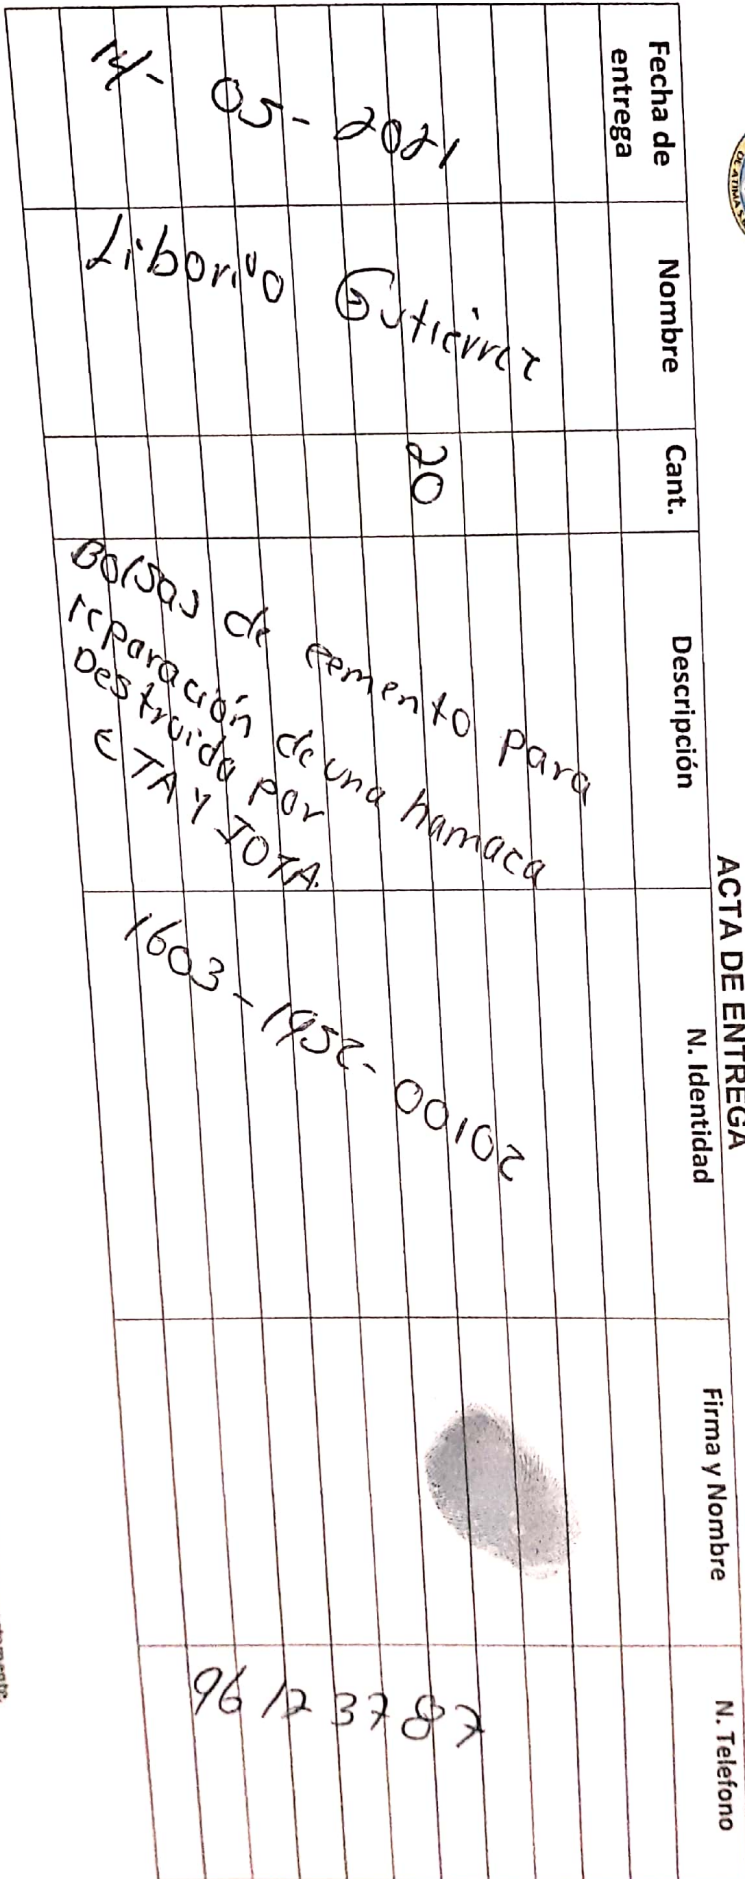 ACTA DE ENTREGA
Fecha de entrega
Nombre
Cant.
Descripción
N. Identidad
Firma y Nombre
N. Telefono
14- 05- 2021
Liborio Gutiérrez
20
Bolsas de cemento para
reparación de una hamaca
Destruida por
ETA Y IOTA.
1603-1952-00102
96 12 37 87